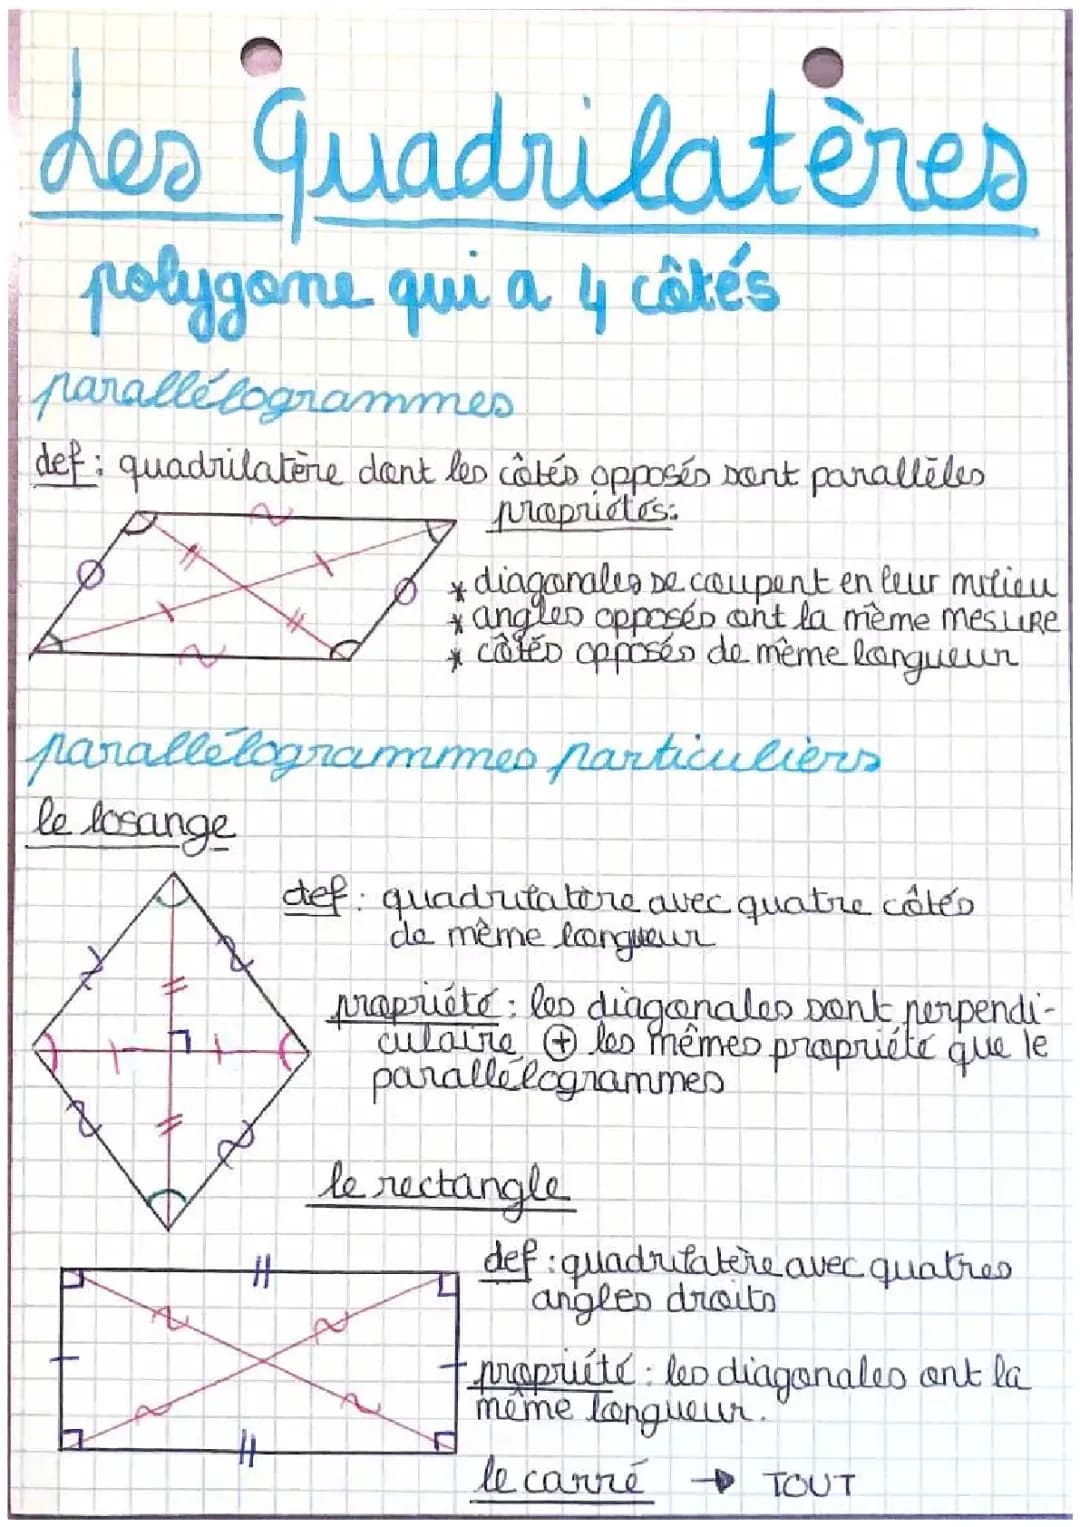 Les Quadrilatères
polygone qui a 4 côtés
parallélogrammes
def : quadrilatère dont les côtés opposés sont parallèles
propriétés:
* diagonales se coupent en leur milieu
* angles opposés ont la même mesure
* côtés opposés de même longueur
parallélogrammes particuliers
le losange
def : quadrilatère avec quatre côtés
de même longueur
propriété : les diagonales sont perpendi-
culaire ⊕ les mêmes propriété que le
parallélogrammes
le rectangle
def : quadrilatère avec quatres
angles droits
propriété : les diagonales ont la
même longueur.
le carré → TOUT